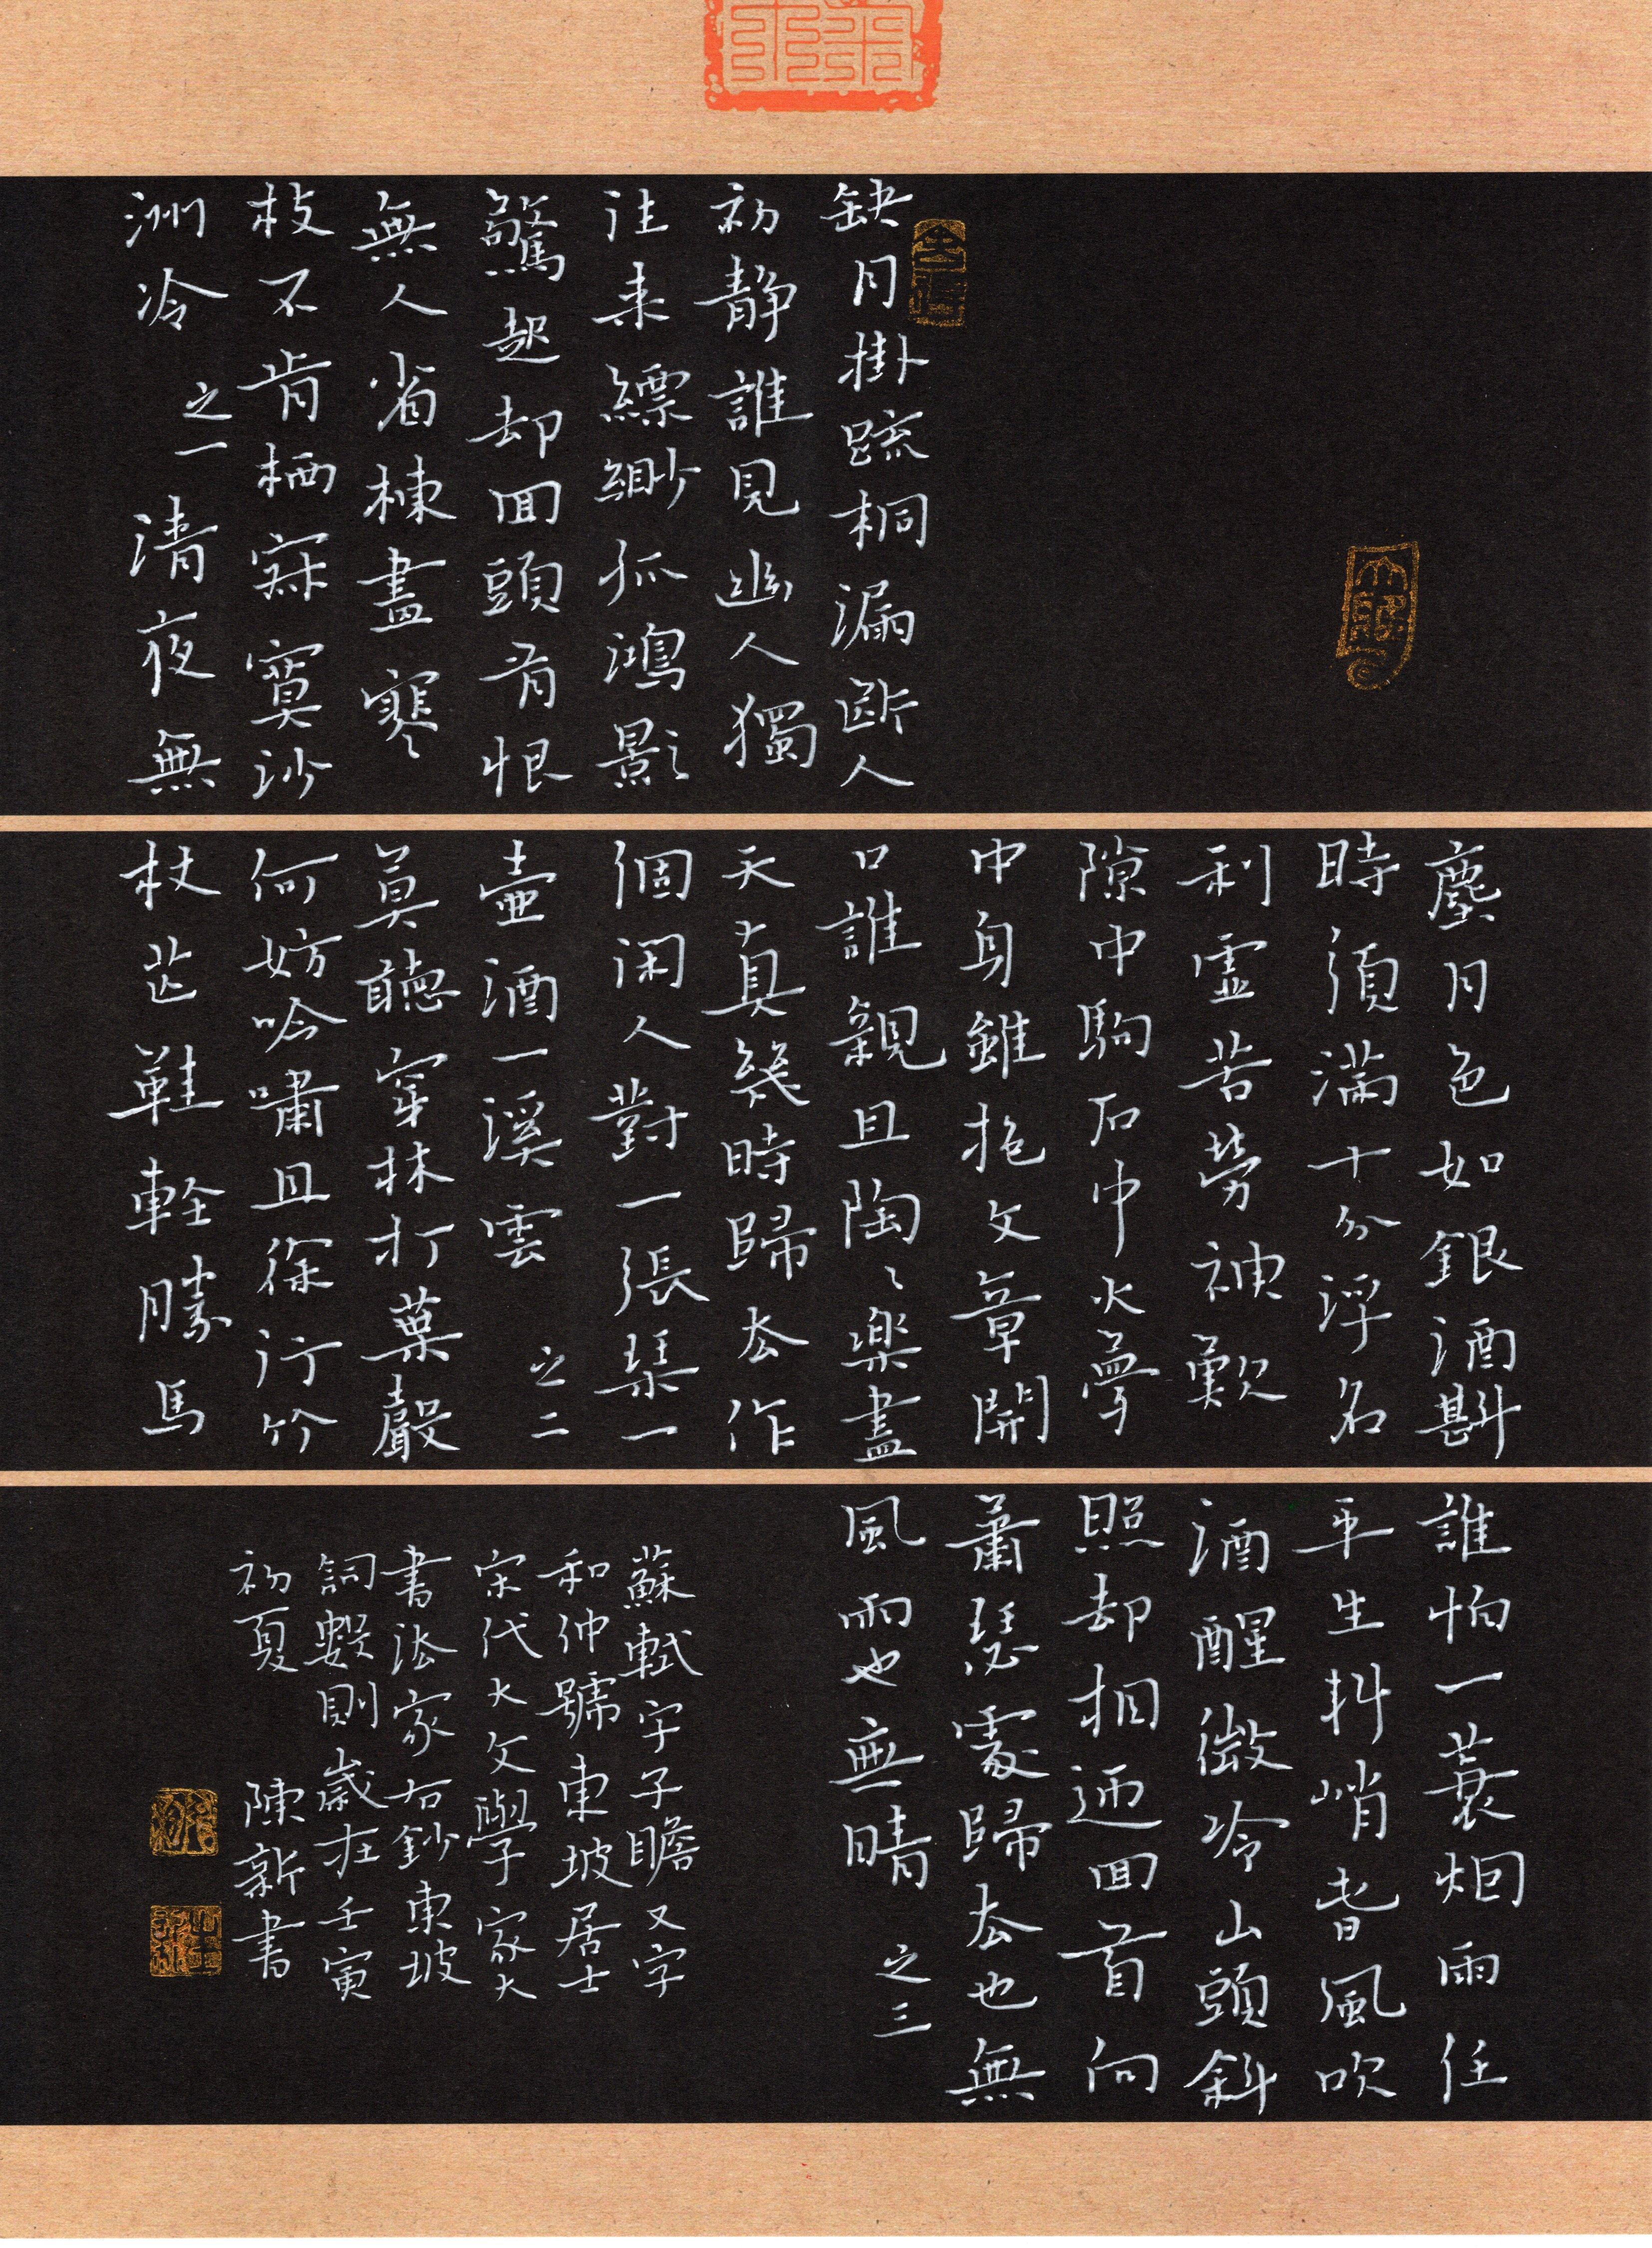 缺月掛疏桐漏斷人
初靜誰見幽人獨
往来縹緲孤鴻影
驚起却回頭有恨
無人省楝盡寒
枝不肯栖寂寞沙
洲冷 之一 清夜無
塵月色如銀酒斟
時須滿十分浮名
利虛苦勞神歎
隙中駒石中火夢
中身雖抱文章開
口誰親且陶〻樂盡
天真幾時歸去作
個閑人對一張琴一
壺酒一溪雲 之二
莫聽穿林打葉聲
何妨吟嘯且徐行竹
杖芒鞋輕勝馬
誰怕一蓑烟雨任
平生料峭春風吹
酒醒微冷山頭斜
照却相迎回首向
蕭瑟處歸去也無
風雨也無晴 之三
蘇軾字子瞻又字
和仲號東坡居士
宋代大文學家大
書法家右鈔東坡
詞數則歲在壬寅
初夏 陳新書